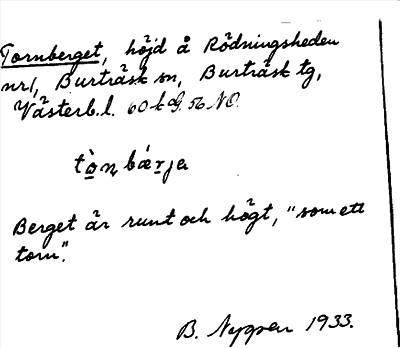 Tornberget, höjd å Rödningsheden
nr1, Burträsk sn, Burträsk tg,
Västerb.l. 60 k G. 56 NO.
tò̱ṇbæ̱rja
Berget är runt och högt, "som ett
torn".
B. Nygren 1933.